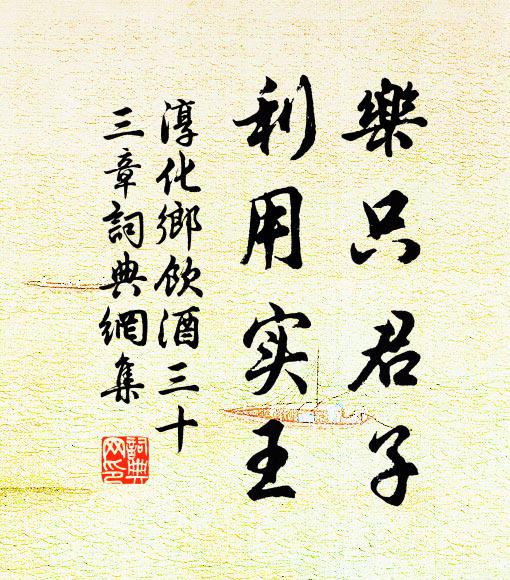 樂只君子
利用实王
淳化鄉飲酒三十
三章詞典網集
詞典
网印